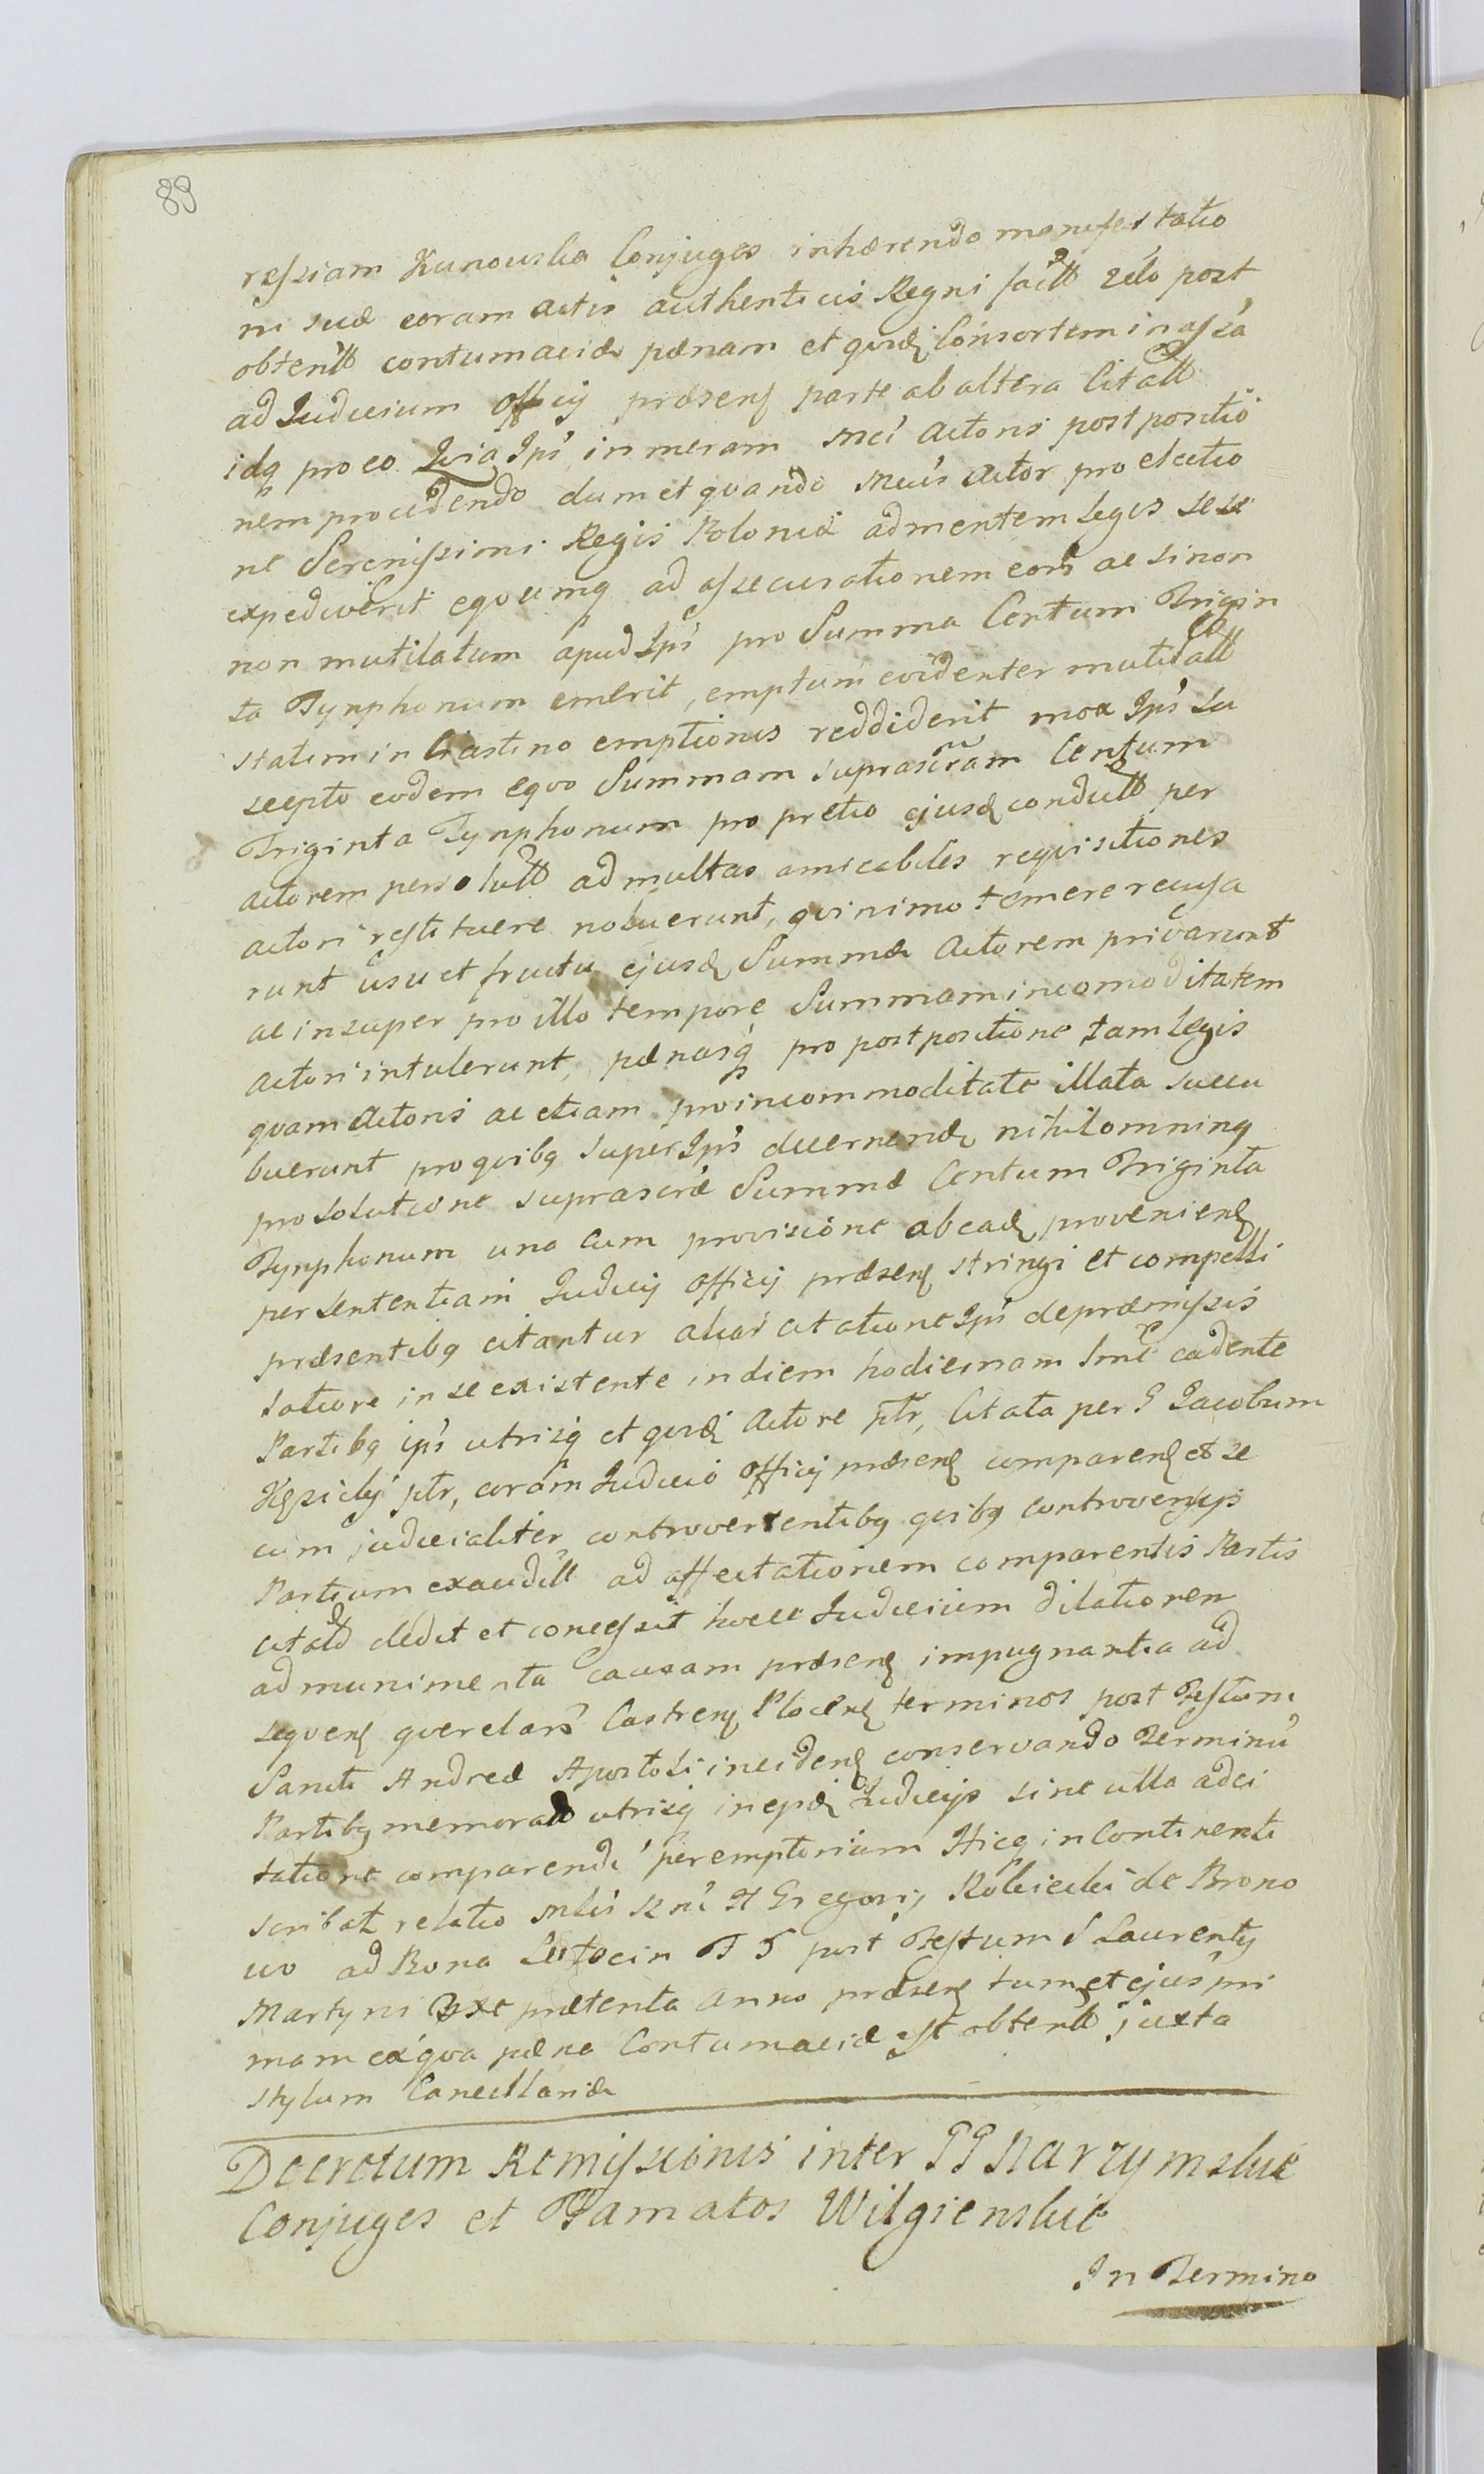 89
resziam Kunouska Conjuges inhærendo manifestatio
ni suæ coram actis authenticis Regni fact zelo post
obtent contumaciæ pænam et quid Consortem in assa
ad Judicium Officij præsen parte ab altera Citatt
idq pro eo Quia Ipi in meram Mci Actoris postpositio
nem procedendo dum et quando Mcus Actor pro electio
ne Serenissimi Regis Poloniæ ad mentem legis sese
expediverit equumq ad assecurationem eorum ac si non
non mutilatum apud Ipi pro Summa Centum Trigin
ta Tynphonum emerit, emptum evidenter mutilatt
statim in Crastino emptionis reddiderit mox Ipi Su
scepto eodem equo Summam suprascram Centum
Triginta Tynphonum pro pretio ejusd conduct per
actorem persolutt ad multas amicabiles requisitiones
actori restituere noluerunt, quinimo temere recusa
runt usu et fructu ejusd Summæ Actorem privarunt
ac insuper pro illo tempore Summam incomoditatem
actori intulerunt, pænasq pro postpositione tam legis
quam Actoris ac etiam pro incommoditate illata succu
buerunt pro quibq super Ipi decernendæ nihilominq
pro solutione suprascræ Summæ Centum Triginta
Tynphonum una cum provisione ab ead provenien
per sententiam Judicij officij præsen stringi et compelli
præsentibq citantur aliar citatione Ipi de præmissis
latiore in se existente in diem hodiernam Sme cadente
Partibq ipi utrisq et quid Actore ptr, Citata per G Jacobum
Kęsicki ptr, coram Judicio Officij præsen comparen et se
cum judicialiter controvertentibq quibq controversijs
Partium exauditt ad affectationem comparentis Partis
citatæ dedit et concessit hocce Judicium dilationem
ad munimenta causam præsen impugnantia ad
sequen querelar Castren Plocen terminos post Festum
Sancti Andreæ Apostoli inciden conservando Terminu
Partibq memorat utrisq in epd Judicijs sine ulla adci
tatione comparendi peremptorium Hicq in Continenti
scribat relatio Mlis Rni H Gregorij Kolicki de Brono
vo ad Bona F 5 post Festum S Laurentij
Martyris prætenta anno præsen tum et ejus pri
mam ex qua pæna Contumaciæ est obtent juxta
stylum Cancellariæ
Decretum Remissionis inter GG Narzymskie
Conjuges et Famatos Wilgienskie
In Termino